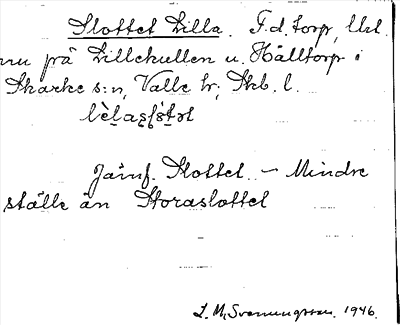 Slottet Lilla. F.d. torp, lht.
nu på Lillekullen u. Hälltorp i
Skarke s:n, Valle hr, Skb. l.
Jämf. Slottet. – Mindre
ställe än Storaslottet
L. M. Svenungsson. 1946.